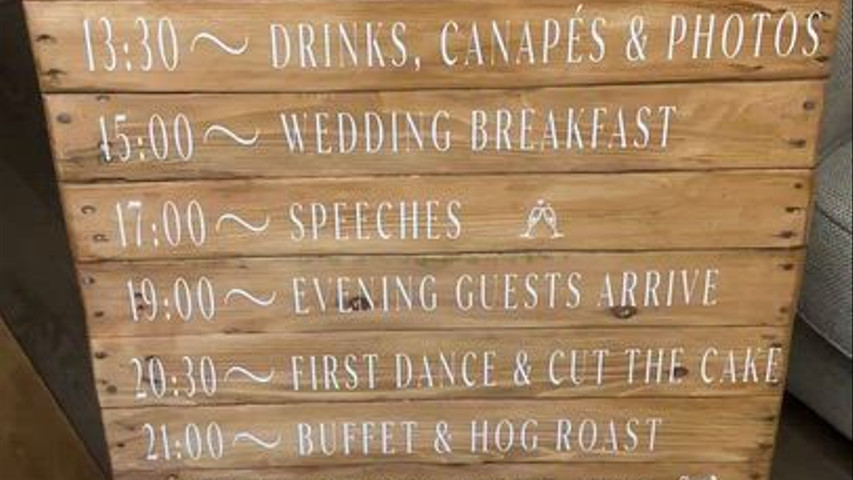 13:30 ~ DRINKS, CANAPÉS & PHOTOS
15:00 ~ WEDDING BREAKFAST
17:00 ~ SPEECHES
19:00 ~ EVENING GUESTS ARRIVE
20:30 ~ FIRST DANCE & CUT THE CAKE
21:00 ~ BUFFET & HOG ROAST